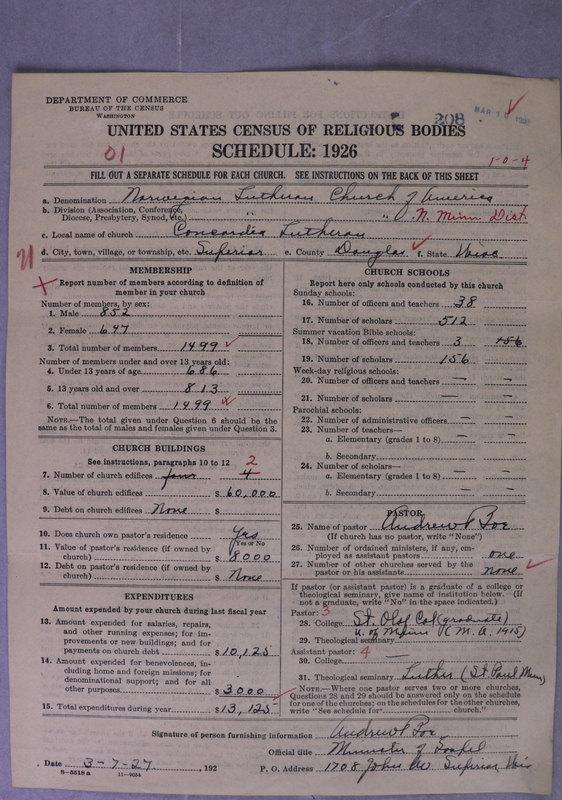 DEPARTMENT OF COMMERCE
BUREAU OF THE CENSUS
WASHINGTON
208
MAR 1
01
UNITED STATES CENSUS OF RELIGIOUS BODIES
SCHEDULE: 1926
1-0-4
FILL OUT A SEPARATE SCHEDULE FOR EACH CHURCH. SEE INSTRUCTIONS ON THE BACK OF THIS SHEET
a. Denomination Norwegian Lutheran Church of America
b. Division (Association, Conference, Diocese, Presbytery, Synod, etc.) " " N. Minn Dist.
c. Local name of church Concordia Lutheran
d. City, town, village, or township, etc. Superior e. County Douglas f. State Wisc
MEMBERSHIP
Report number of members according to definition of
member in your church
Number of members, by sex:
1. Male 852
2. Female 647
3. Total number of members 1499
Number of members under and over 13 years old:
4. Under 13 years of age 686
5. 13 years old and over 813
6. Total number of members 1499
NOTE.—The total given under Question 6 should be the
same as the total of males and females given under Question 3.
CHURCH BUILDINGS
See instructions, paragraphs 10 to 12 2
7. Number of church edifices four 4
8. Value of church edifices $ 60,000
9. Debt on church edifices None $
10. Does church own pastor's residence Yes
(Yes or No)
11. Value of pastor's residence (if owned by
church) $ 8000
12. Debt on pastor's residence (if owned by
church) $ None
EXPENDITURES
Amount expended by your church during last fiscal year
13. Amount expended for salaries, repairs,
and other running expenses; for im-
provements or new buildings; and for
payments on church debt $ 10,125
14. Amount expended for benevolences, in-
cluding home and foreign missions; for
denominational support; and for all
other purposes $ 3000
15. Total expenditures during year $ 13,125
CHURCH SCHOOLS
Report here only schools conducted by this church
Sunday schools:
16. Number of officers and teachers 38
17. Number of scholars 512
Summer vacation Bible schools:
18. Number of officers and teachers 3 456
19. Number of scholars 156
Week-day religious schools:
20. Number of officers and teachers — —
21. Number of scholars — —
Parochial schools:
22. Number of administrative officers — —
23. Number of teachers—
a. Elementary (grades 1 to 8) — —
b. Secondary
24. Number of scholars—
a. Elementary (grades 1 to 8) — —
b. Secondary — —
PASTOR
25. Name of pastor Andrew
(If church has no pastor, write "None")
26. Number of ordained ministers, if any, em-
ployed as assistant pastors one
27. Number of other churches served by the
pastor or his assistants none
If pastor (or assistant pastor) is a graduate of a college or
theological seminary, give name of institution below. (If
not a graduate, write "No" in the space indicated.)
Pastor: 3
28. College St. Olaf Col (graduate)
U. of Minn (M.A. 1915)
29. Theological seminary
Assistant pastor: 4
30. College
31. Theological seminary Luther (St. Paul Minn)
NOTE.—Where one pastor serves two or more churches,
Questions 28 and 29 should be answered only on the schedule
for one of the churches; on the schedules for the other churches,
write "See schedule for church."
Signature of person furnishing information Andrew
Official title Minister of Gospel
Date 3-7-27, 192 P. O. Address 1708 John Av Superior, Wis
8—5518 a 11—9054